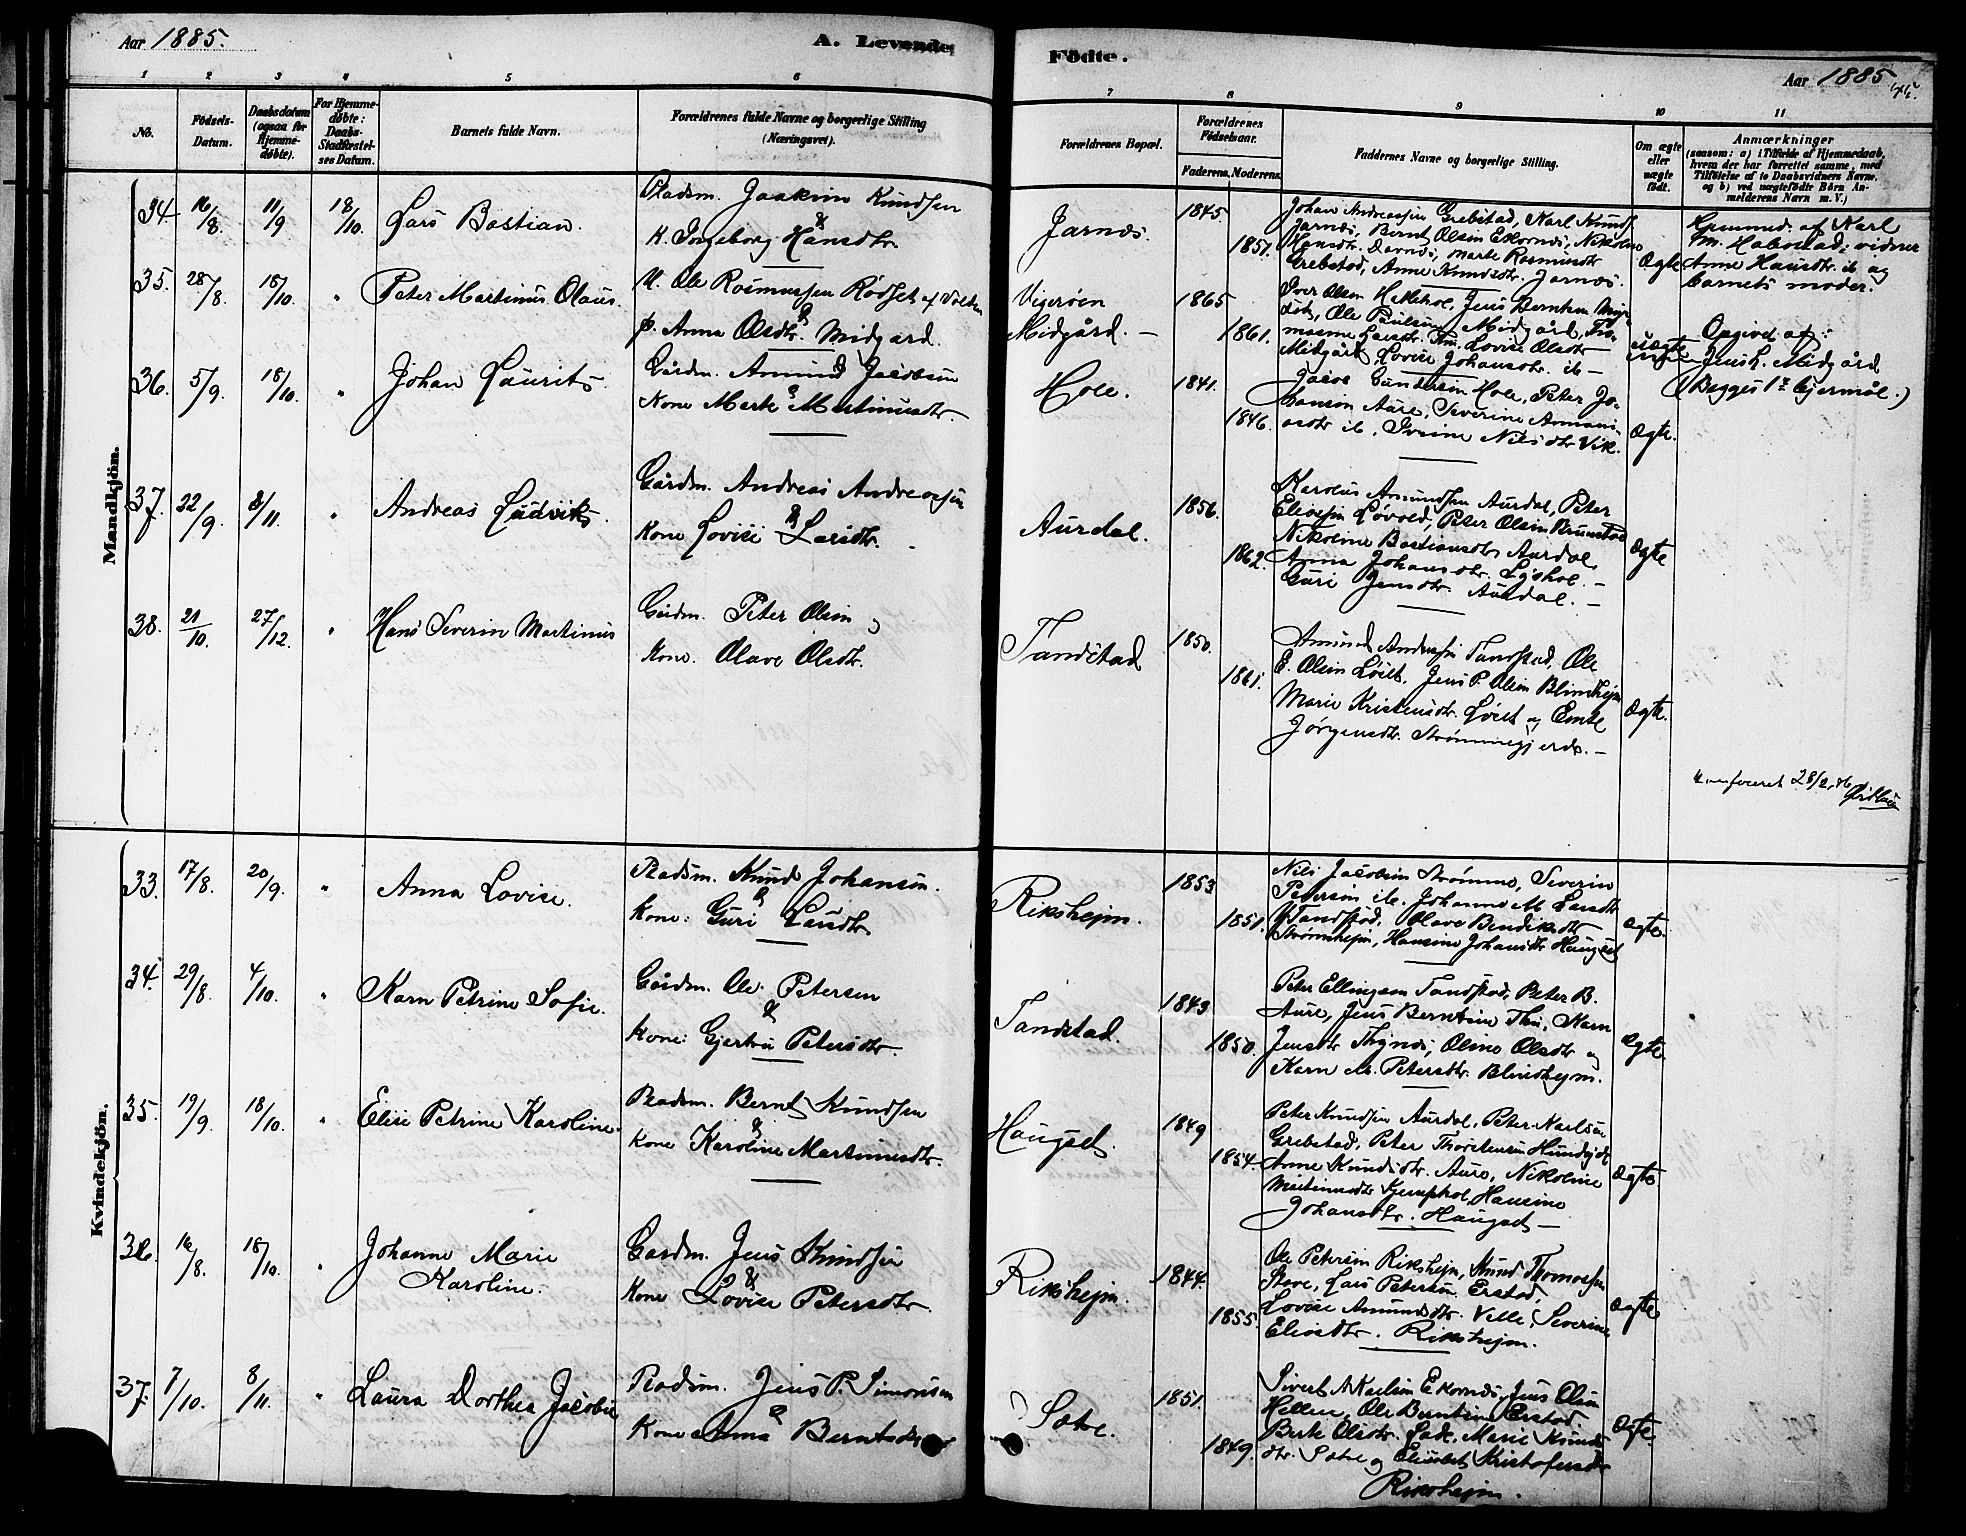 Aar 1885.
A. Levende
Födte.
Aar 1885
45.
1 2 3 4 5 6
7 8 9 10 11
No.
Födsels-
Datum.
Daabsdatum
(ogsaa for
Hjemme-
døbte).
For Hjemme-
døbte:
Daabs-
Stadfæstel-
ses Datum.
Barnets fulde Navn.
Forældrenes fulde Navne og borgerlige Stilling
(Næringsvei).
Forældrenes Bopæl.
Forældrenes
Födselsaar.
Faderens. Moderens.
Faddernes Navne og borgerlige Stilling.
Om ægte
eller
uægte
født.
Anmærkninger
(saasom: a) i Tilfælde af Hjemmedaab,
hvem der har forrettet samme, med
Tilföielse af to Daabsvidners Navne,
og b) ved uægtefödte Börn An-
melderens Navn m. V.)
Mandkjön.
34 16/8 11/9 18/10 Lars Bastian.
Pladsm. Joakim Knudsen
&
K. Ingeborg Hansdtr.
Jarnæs.
1845.
1851.
Johan Andreassen Grebstad, Karl Knuds.
Jarnæs, Bernt Olsen Ekornæs, Nikoline
Hansdtr. Marte Rasmusdtr
Grebstad, Anne Knudsdtr. Jarnæs.
Ægte
af Karl
Anne Hansdtr. ib og
barnets moder.
35. 28/8 18/10. " Peter Martinus Olaus.
U. Ole Rasmussen Rødset af Volden
&
p. Anna Olsdtr. Midgard.
Vigerøen
Midgård. —
1865
1861.
Iver Olsen Jens Berntsen
Ole Paulsen Midgård,
Larsdtr. Lovise Olsdtr
Midgård Lovise Johansdtr. ib —
uægte
Opgivet af:
Jens L. Midgård
(Begges 1ste Lejermål.)
36. 5/9. 18/10. " Johan Laurits
Gårdm. Amund Jacobsen
&
Kone Marte Martinusdtr.
Hole.
1841.
1846.
Jacob Gundersen Hole, Peter Jo-
hansen Aure, Severine
ib, Nilsdtr Vik.
Ægte.
37. 22/9. 8/11. " Andreas Ludvik.
Gårdm. Andreas Andreassen
&
Kone Lovise Larsdtr.
Aurdal.
1856.
1862.
Karolus Amundsen Aurdal, Peter
Eliesen Løvold, Peter Olsen Brunstad
Nikoline Bastiansdtr Aurdal,
Anna Johansdtr. —
Guri Jensdtr. Aurdal. —
Ægte
38. 21/10. 27/12. " Hans Severin Martinus
Gårdm. Peter Olsen
&
Kone. Olave Olsdtr.
Tandstad
1850.
1861.
Amund Andersen Tandstad, Ole
E. Olsen Løset, Jens P. Olsen Blindhejm
Marie Kristensdtr. Løset og Emte
Jørgensdtr. Strømmegjerde. —
Ægte.
Konfereret 28/2 86
Kvindekjön.
33. 17/8. 20/9. " Anna Lovise.
Pladsm. Knud Johansen.
&
Kone: Guri Larsdtr.
Rikshejm.
1853
1851.
Nils Jacobsen Strømme, Severin
Petersen ib. Johanne M. Larsdtr
Tandstad, Olave Bendiksdtr
Strømshejm, Hansine Johansdtr Haugset
ægte.
34. 29/8. 4/10. " Karn Petrine Sofie.
Gårdm. Ole Petersen
&
Kone: Gjertru Petersdtr.
Tandstad.
1843
1850.
Peter Ellingsen Tandstad, Peter B.
Aure, Jens Berntsen Thu, Karn
Jensdtr Thynæs, Oline Olsdtr og
Karn M. Petersdtr. Blindhejm.
Ægte.
35. 19/9. 18/10. " Elise Petrine Karoline.
Pladsm. Bernt Knudsen
&
Kone Karoline Martinusdtr.
Haugset.
1849
1854.
Peter Knudsen Aurdal, Peter Karlsen
Grebstad, Peter Thorstensen
Anne Knudsdtr. Aure, Nikoline
Martinusdtr Hansine
Johansdtr. Haugset —
Ægte.
36. 16/8. 18/10. " Johanne Marie
Karoline.
Gårdm. Jens Knudsen
&
Kone Lovise Petersdtr.
Rikshejm.
1844.
1855.
Ole Petersen Rikshejm, Knud Thomassen
Stave, Lars Petersen Erstad,
Lovise Amundsdtr. Velle, Severine
Eliasdtr. Rikshejm.
Ægte.
37. 7/10. 8/11. " Laura Dorthea Jacobie
Pladsm. Jens P. Simonsen
&
Kone Anna Berntsdtr
Sætre.
1851.
1849.
Sivert A. Karlsen Ekornæs, Jens Olsen
Hellen, Ole Berntsen Erstad,
Berte Olsdtr. Marie Knuds-
dtr. Sætre og Elisabet Kristofersdtr
Rikshejm.
Ægte.